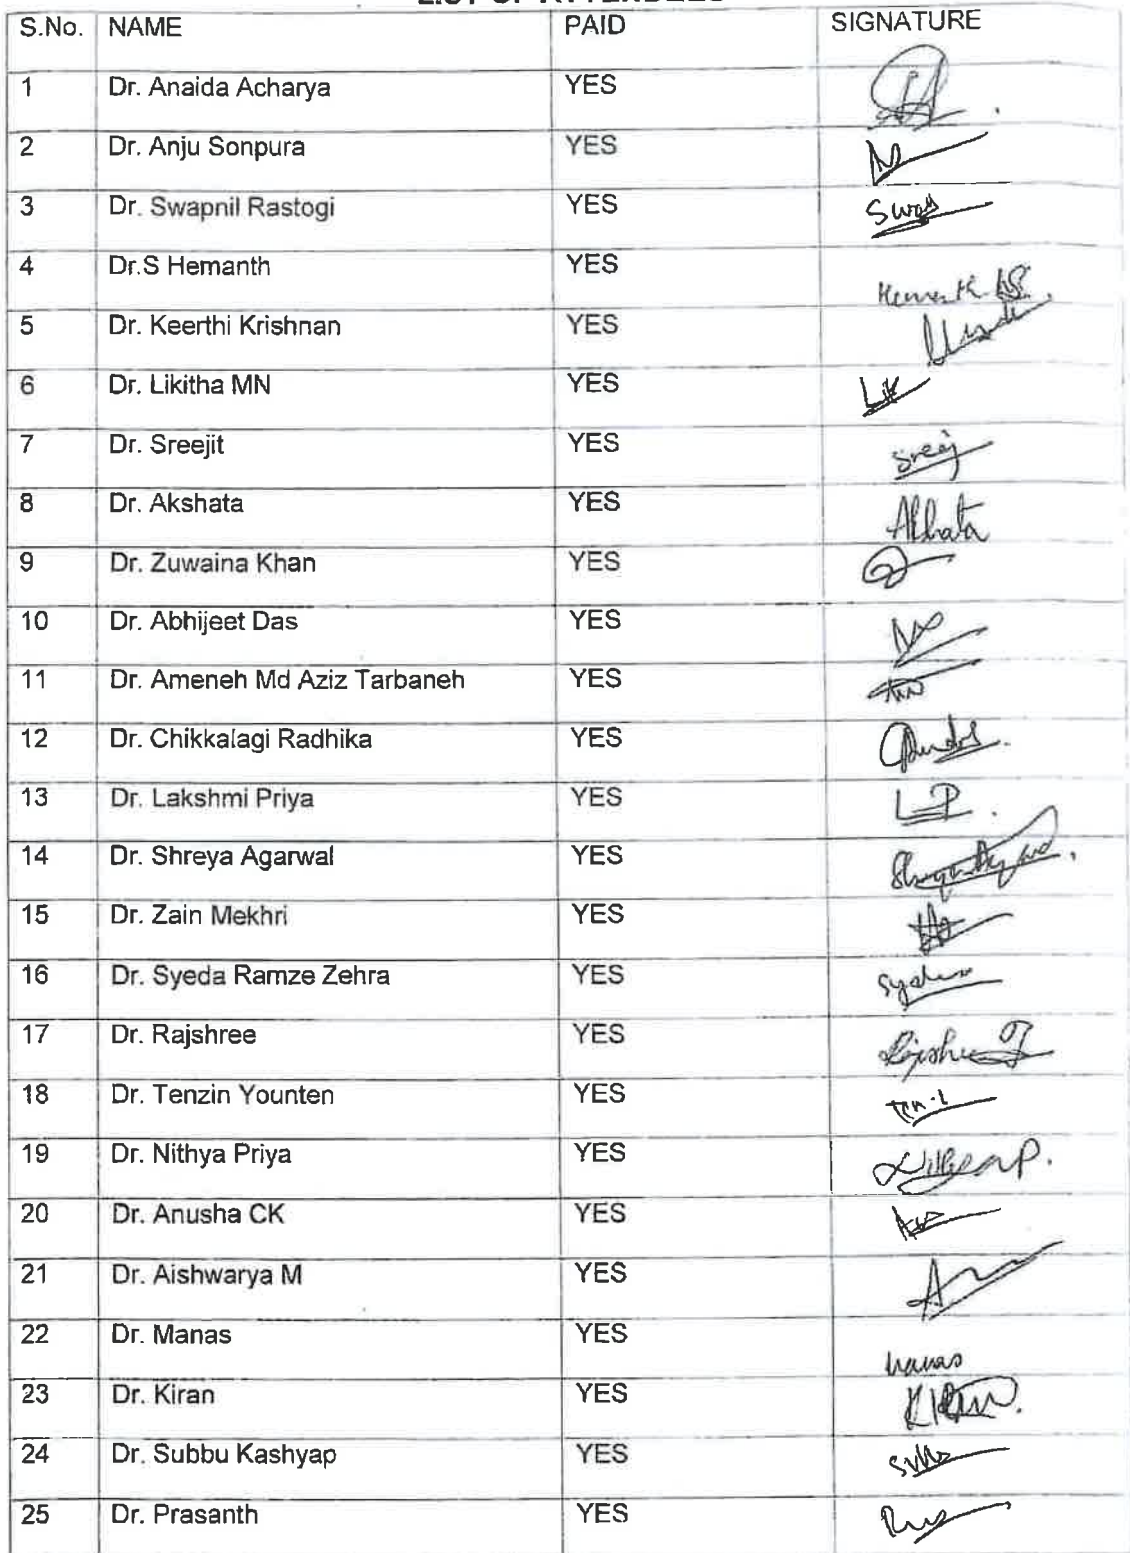 LIST OF ATTENDEES
S.No. NAME PAID SIGNATURE
1 Dr. Anaida Acharya YES
2 Dr. Anju Sonpura YES
3 Dr. Swapnil Rastogi YES
4 Dr.S Hemanth YES
5 Dr. Keerthi Krishnan YES
6 Dr. Likitha MN YES Lik
7 Dr. Sreejit YES Sreej
8 Dr. Akshata YES
9 Dr. Zuwaina Khan YES
10 Dr. Abhijeet Das YES
11 Dr. Ameneh Md Aziz Tarbaneh YES
12 Dr. Chikkalagi Radhika YES
13 Dr. Lakshmi Priya YES LP.
14 Dr. Shreya Agarwal YES
15 Dr. Zain Mekhri YES
16 Dr. Syeda Ramze Zehra YES
17 Dr. Rajshree YES
18 Dr. Tenzin Younten YES
19 Dr. Nithya Priya YES
20 Dr. Anusha CK YES
21 Dr. Aishwarya M YES
22 Dr. Manas YES Manas
23 Dr. Kiran YES Kiran.
24 Dr. Subbu Kashyap YES
25 Dr. Prasanth YES